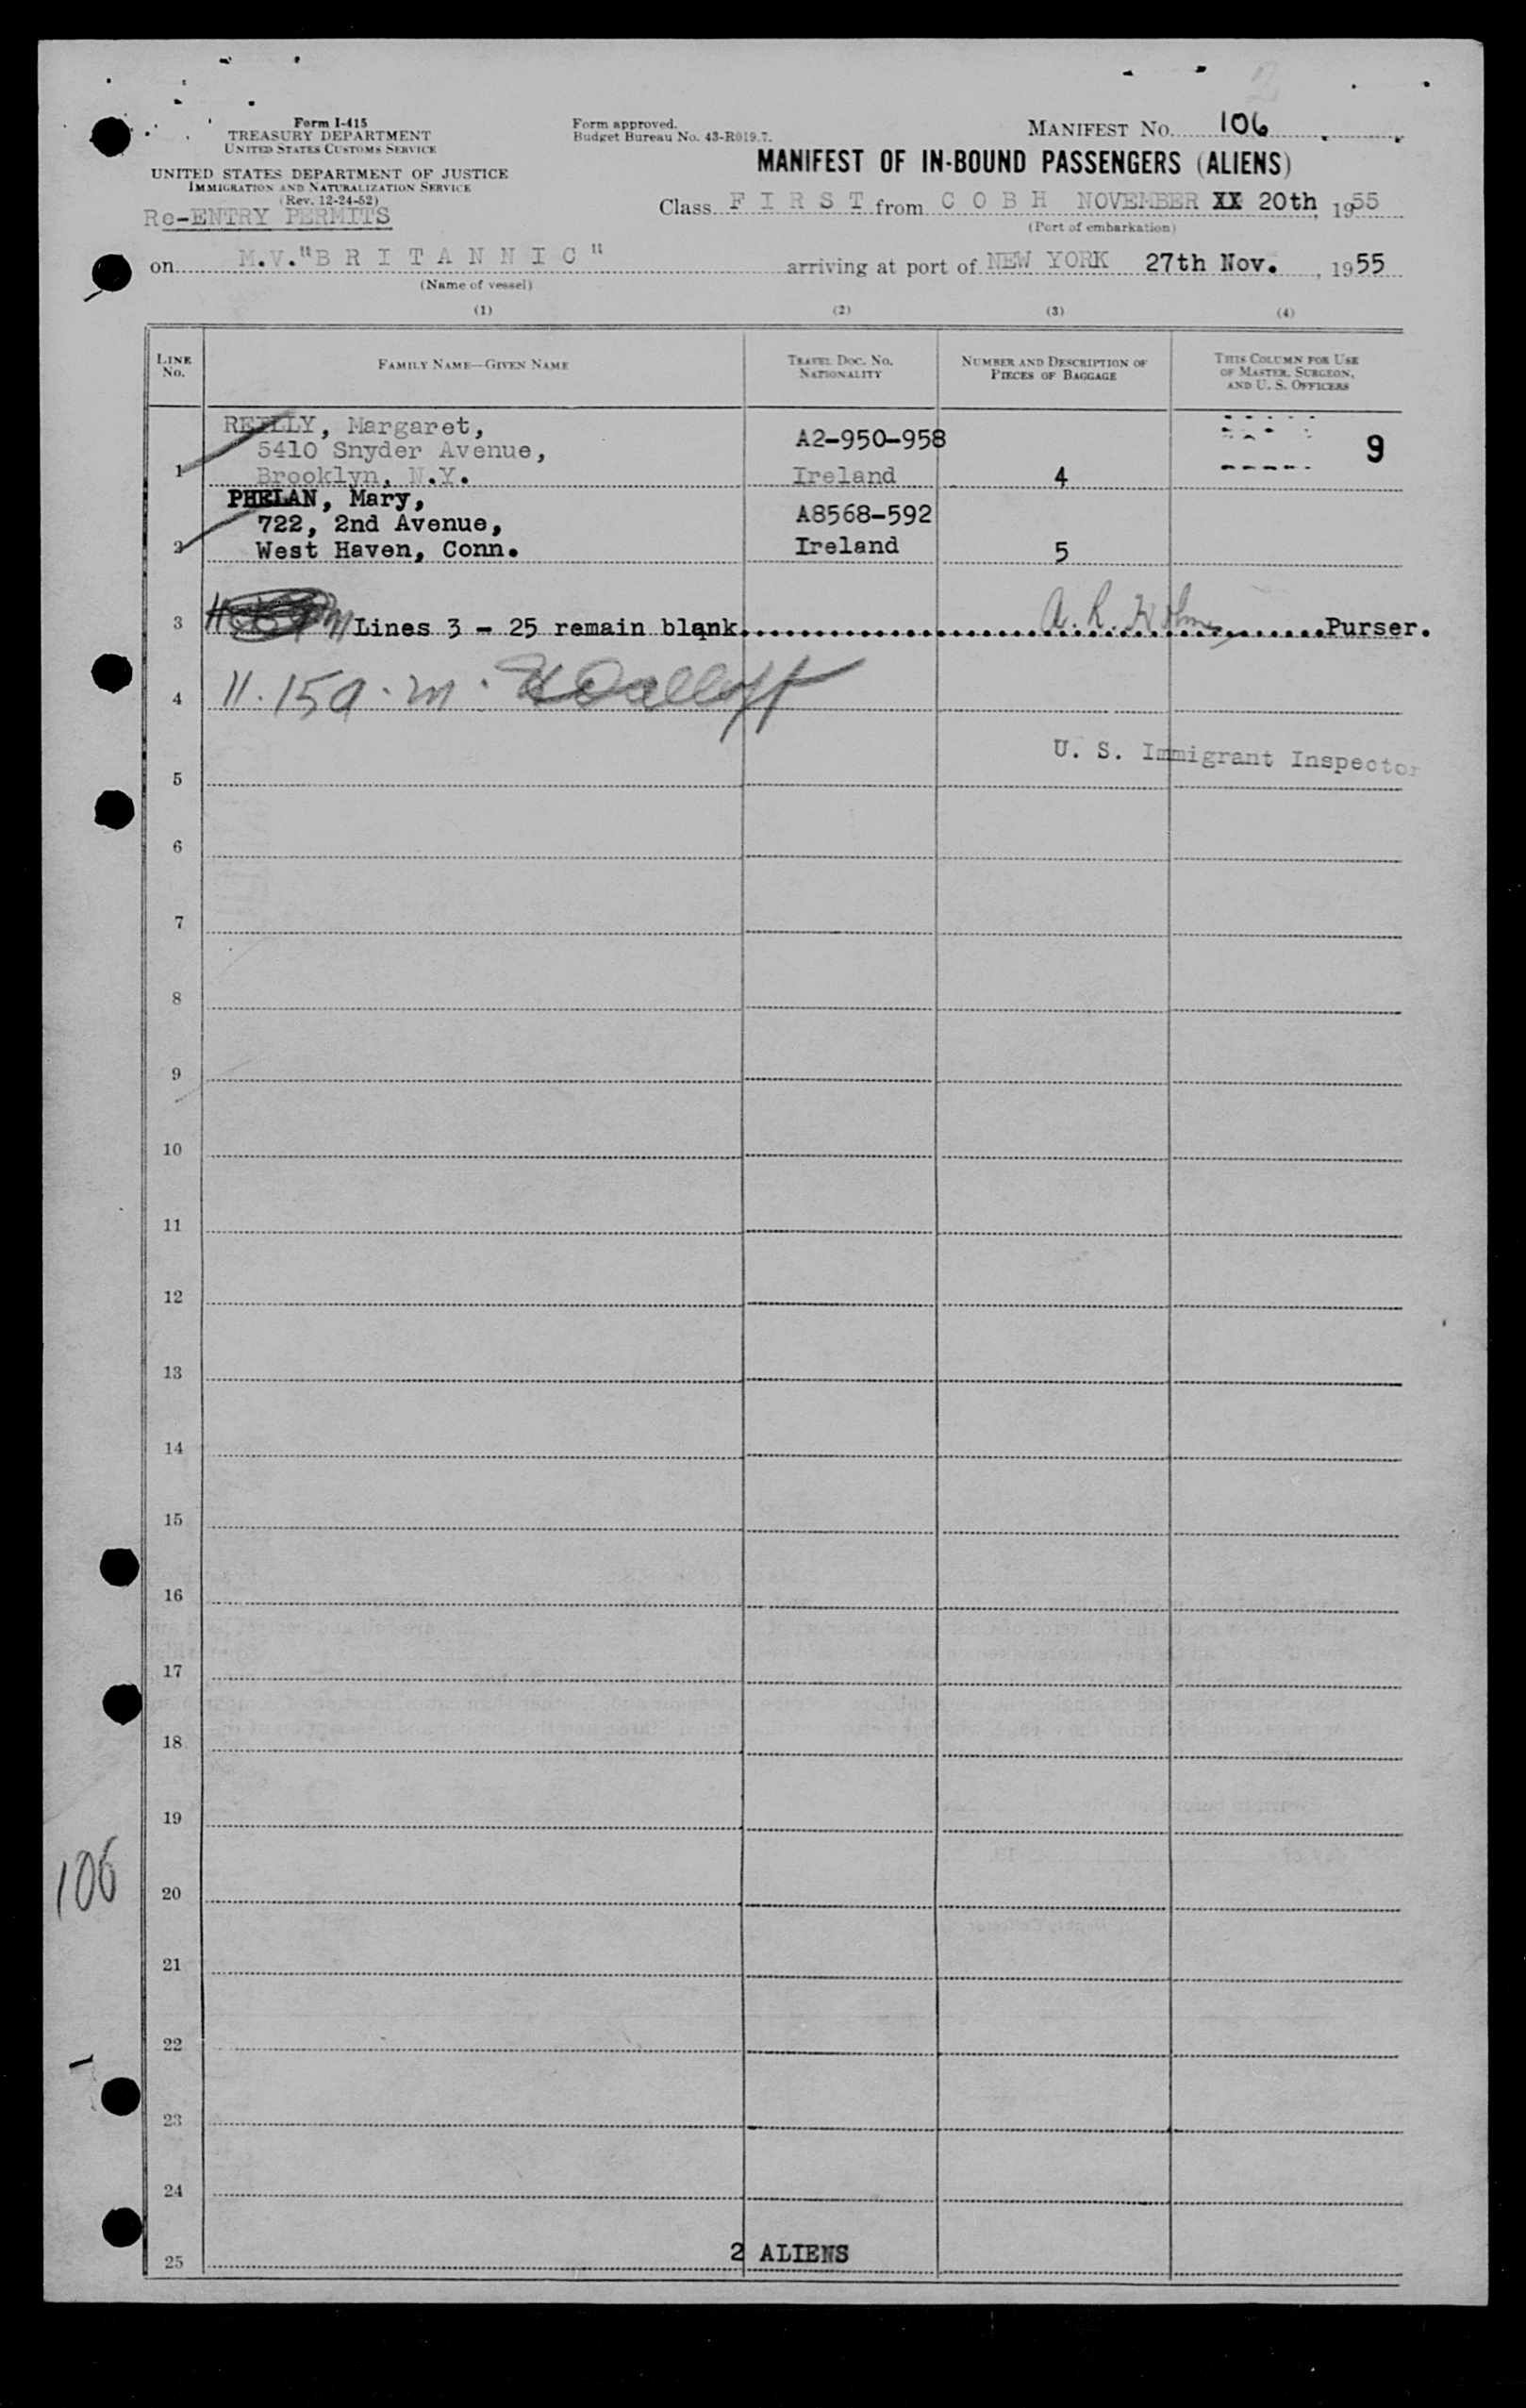 Form I-415
TREASURY DEPARTMENT
UNITED STATES CUSTOMS SERVICE
UNITED STATES DEPARTMENT OF JUSTICE
IMMIGRATION AND NATURALIZATION SERVICE
(Rev. 12-24-52)
Re-ENTRY PERMITS
Form approved.
Budget Bureau No. 43-R019.7.
MANIFEST No. 106
MANIFEST OF IN-BOUND PASSENGERS (ALIENS)
Class F I R S T from C O B H NOVEMBER XX 20th, 1955
(Port of embarkation)
on M.V."B R I T A N N I C" arriving at port of NEW YORK 27th Nov., 1955
(Name of vessel)
(1) (2) (3) (4)
LINE No.
FAMILY NAME—GIVEN NAME
TRAVEL DOC. NO. NATIONALITY
NUMBER AND DESCRIPTION OF PIECES OF BAGGAGE
THIS COLUMN FOR USE OF MASTER, SURGEON, AND U. S. OFFICERS
REILLY, Margaret,
5410 Snyder Avenue, A2-950-958 9
1 Brooklyn, N.Y. Ireland 4
PHELAN, Mary,
722, 2nd Avenue, A8568-592
2 West Haven, Conn. Ireland 5
3 Lines 3 - 25 remain blank. A. R. Purser.
4 11.15 a.m.
U. S. Immigrant Inspector
5
6
7
8
9
10
11
12
13
14
15
16
17
18
19
106
20
21
22
23
24
2 ALIENS
25